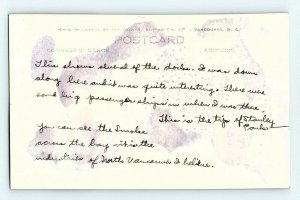 MADE IN CANADA BY THE GOWEN, SUTTON CO. LTD., VANCOUVER, B. C.
POSTCARD
CORRESPONDENCE ADDRESS
This shows several of the docks. I was down
along here and it was quite interesting. There were
some big passenger ships in when I was there.
This is the tip of Stanley
Park
you can see the smoke
across the bay - it is the
industries of North Vancouver I believe.